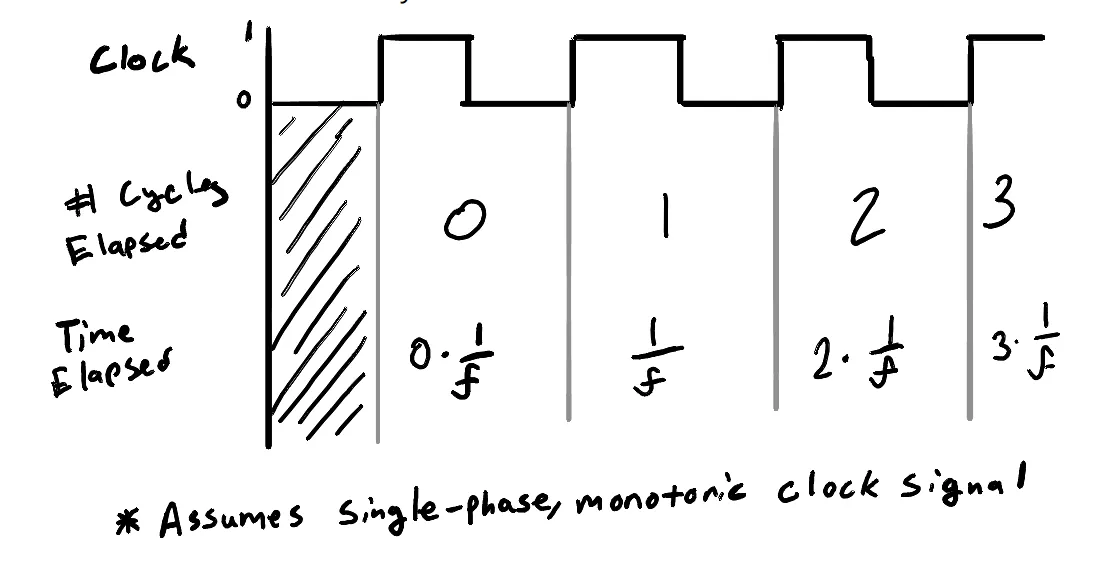 1
Clock
0
# Cycles
Elapsed
0 1 2 3
Time
Elapsed
0 · 1/f 1/f 2 · 1/f 3 · 1/f
* Assumes single-phase, monotonic clock signal